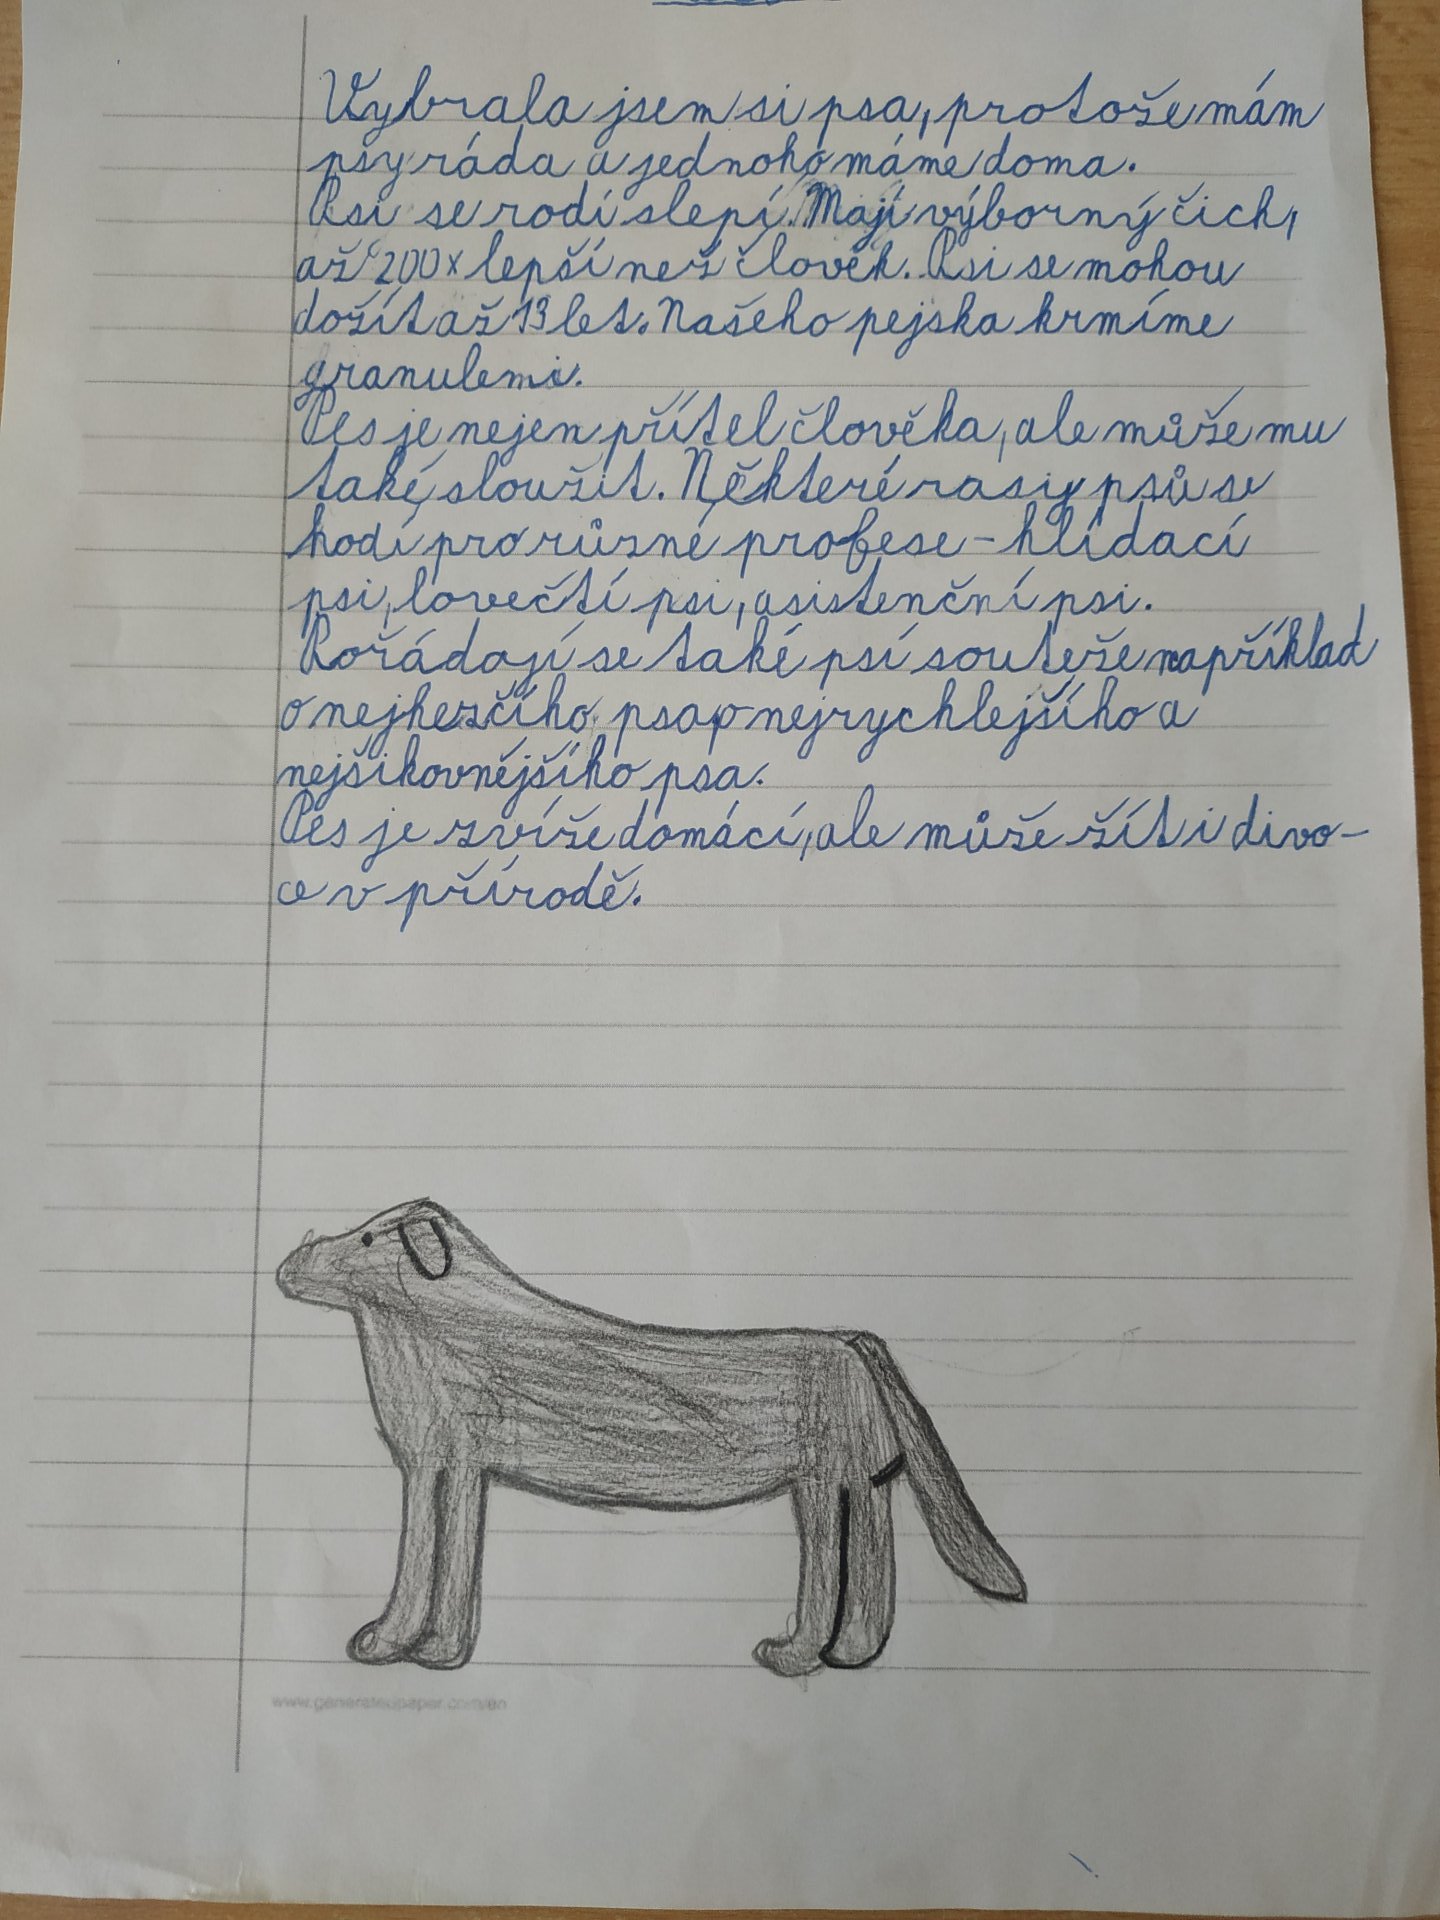 Vybrala jsem si psa, protože mám
psy ráda a jednoho máme doma.
Psi se rodí slepí. Mají výborný čich,
až 200x lepší než člověk. Psi se mohou
dožít až 13 let. Našeho pejska krmíme
granulemi.
Pes je nejen přítel člověka, ale může mu
také sloužit. Některé rasy psů se
hodí pro různé profese - hlídací
psi, lovečtí psi, asistenční psi.
Pořádají se také psí souteže například
o nejhezčího psa, o nejrychlejšího a
nejšikovnějšího psa.
Pes je zvíře domácí, ale může žít i divo-
ce v přírodě.
www.generatedpaper.com/en